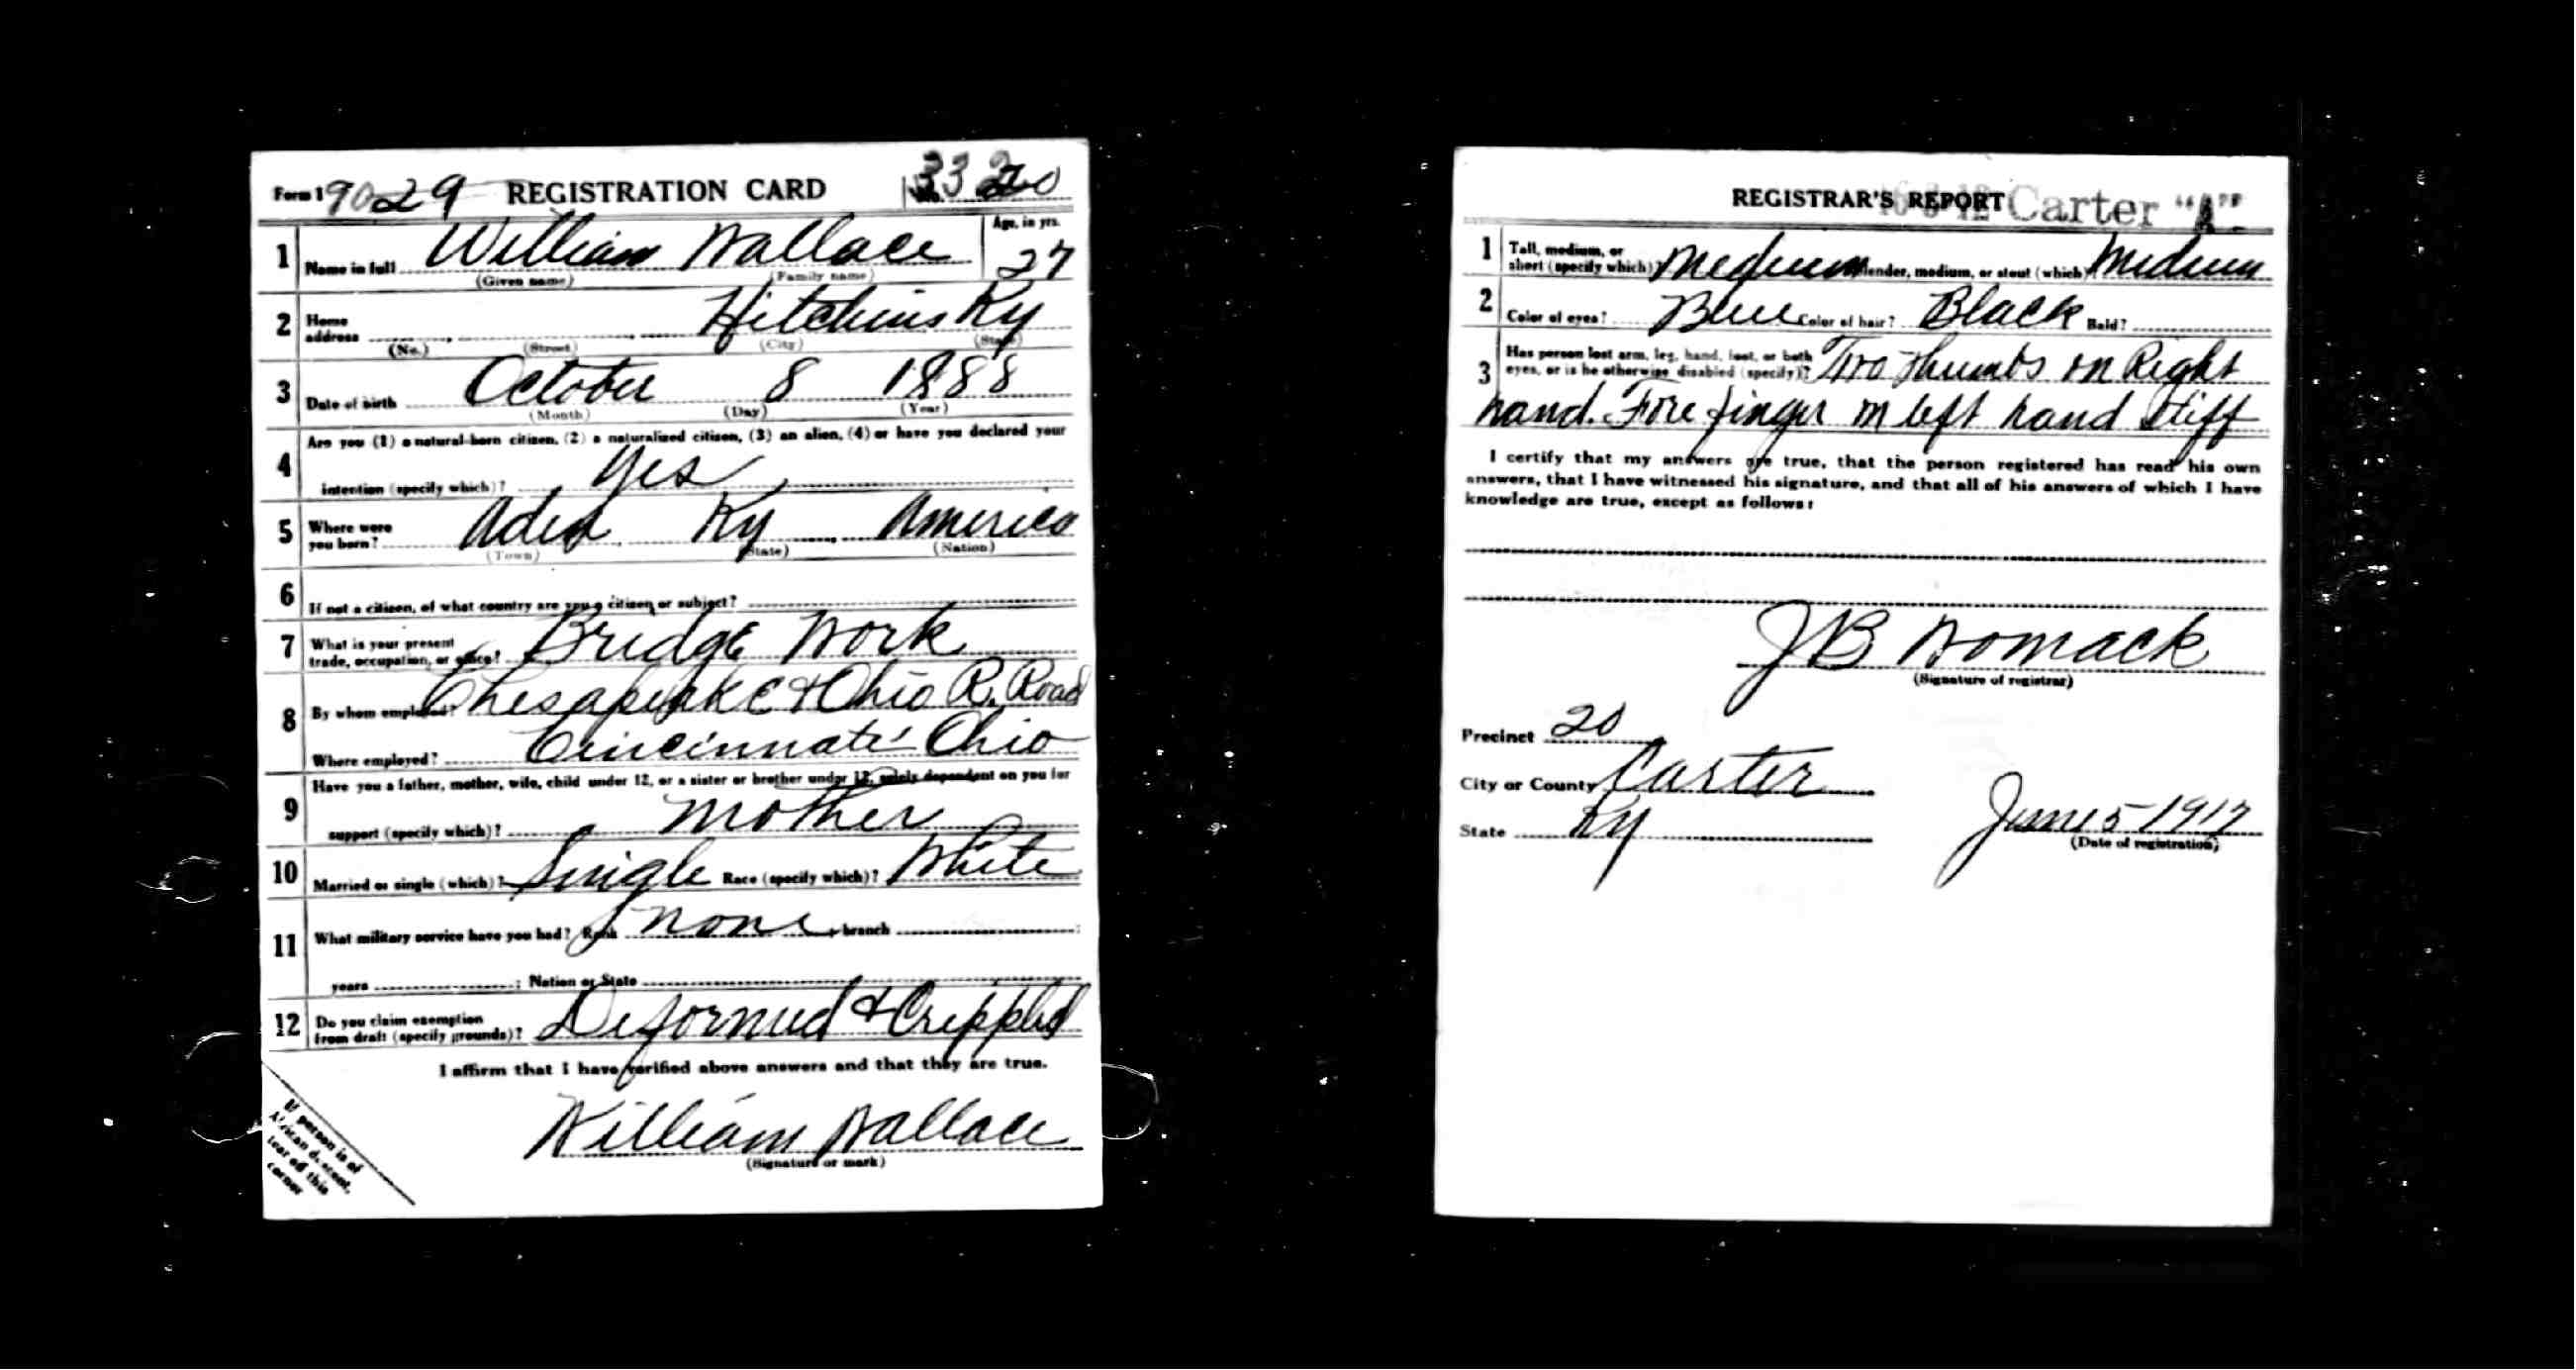 Form 1 9029 REGISTRATION CARD No. 20
1 Name in full William Wallace Age, in yrs. 27
(Given name) (Family name)
2 Home address Hitchins Ky
(No.) (Street) (City) (State)
3 Date of birth October 8 1888
(Month) (Day) (Year)
Are you (1) a natural-born citizen, (2) a naturalized citizen, (3) an alien, (4) or have you declared your
4 intention (specify which)? Yes
5 Where were you born? Aden Ky America
(Town) (State) (Nation)
6 If not a citizen, of what country are you a citizen or subject?
7 What is your present trade, occupation, or office? Bridge Work
8 By whom employed? Chesapeake & Ohio R. Road
Where employed? Cincinnati Ohio
Have you a father, mother, wife, child under 12, or a sister or brother under 12, solely dependent on you for
9 support (specify which)? Mother
10 Married or single (which)? Single Race (specify which)? White
11 What military service have you had? Rank none, branch
years ; Nation or State
12 Do you claim exemption from draft (specify grounds)? Deformed & Crippled
I affirm that I have verified above answers and that they are true.
William Wallace
(Signature or mark)
If person is of
African descent,
tear off this
corner
REGISTRAR'S REPORT Carter "A"
1 Tall, medium, or short (specify which)? Medium Slender, medium, or stout (which)? Medium
2 Color of eyes? Blue Color of hair? Black Bald?
3 Has person lost arm, leg, hand, foot, or both eyes, or is he otherwise disabled (specify)? Two thumbs on Right
hand. Fore finger on left hand stiff
I certify that my answers are true, that the person registered has read his own
answers, that I have witnessed his signature, and that all of his answers of which I have
knowledge are true, except as follows:
JB Womack
(Signature of registrar)
Precinct 20
City or County Carter
State Ky June 5 1917
(Date of registration)